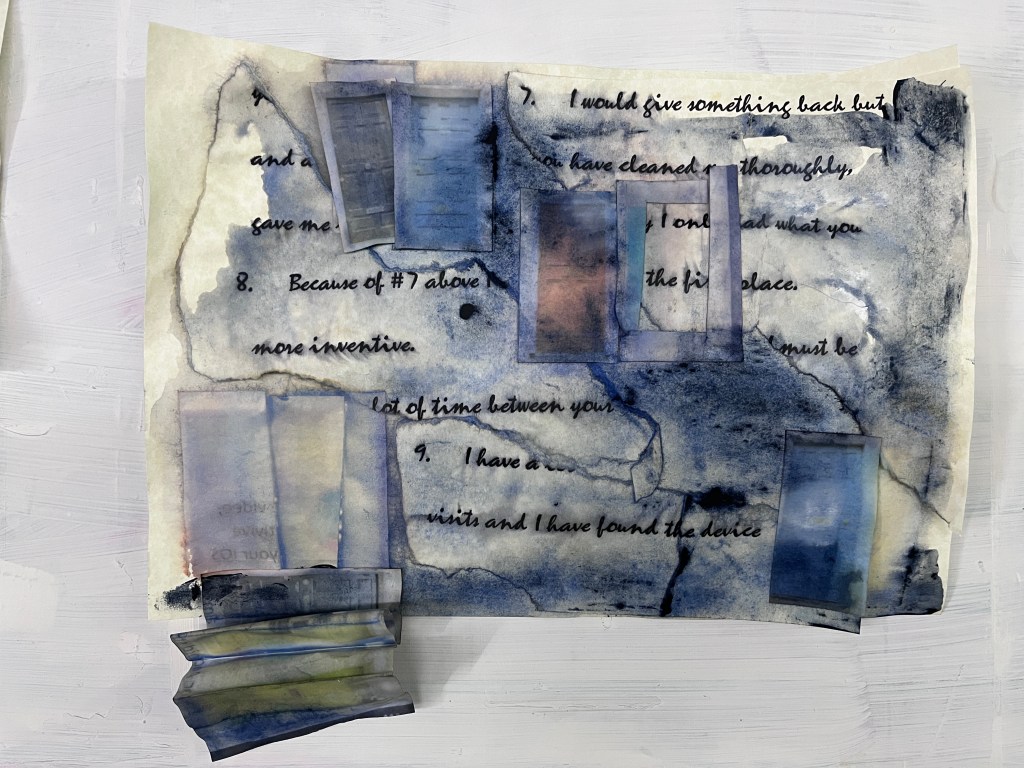 7. I would give something back but
and a
have cleaned thoroughly,
gave me I only had what you
8. Because of #7 above I the first place.
more inventive. must be
lot of time between your
9. I have a
visits and I have found the device
video,
your iOS